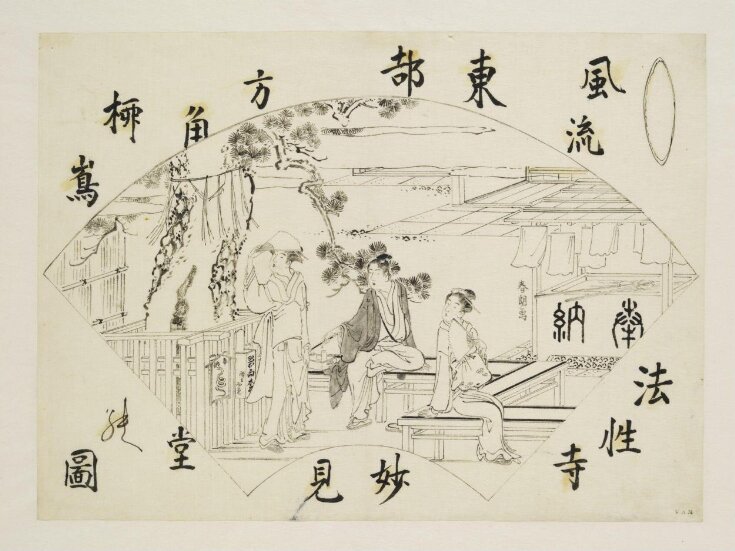 風流
東都
方角
柳嶌
法性寺
妙見堂
圖
春朗画
奉納